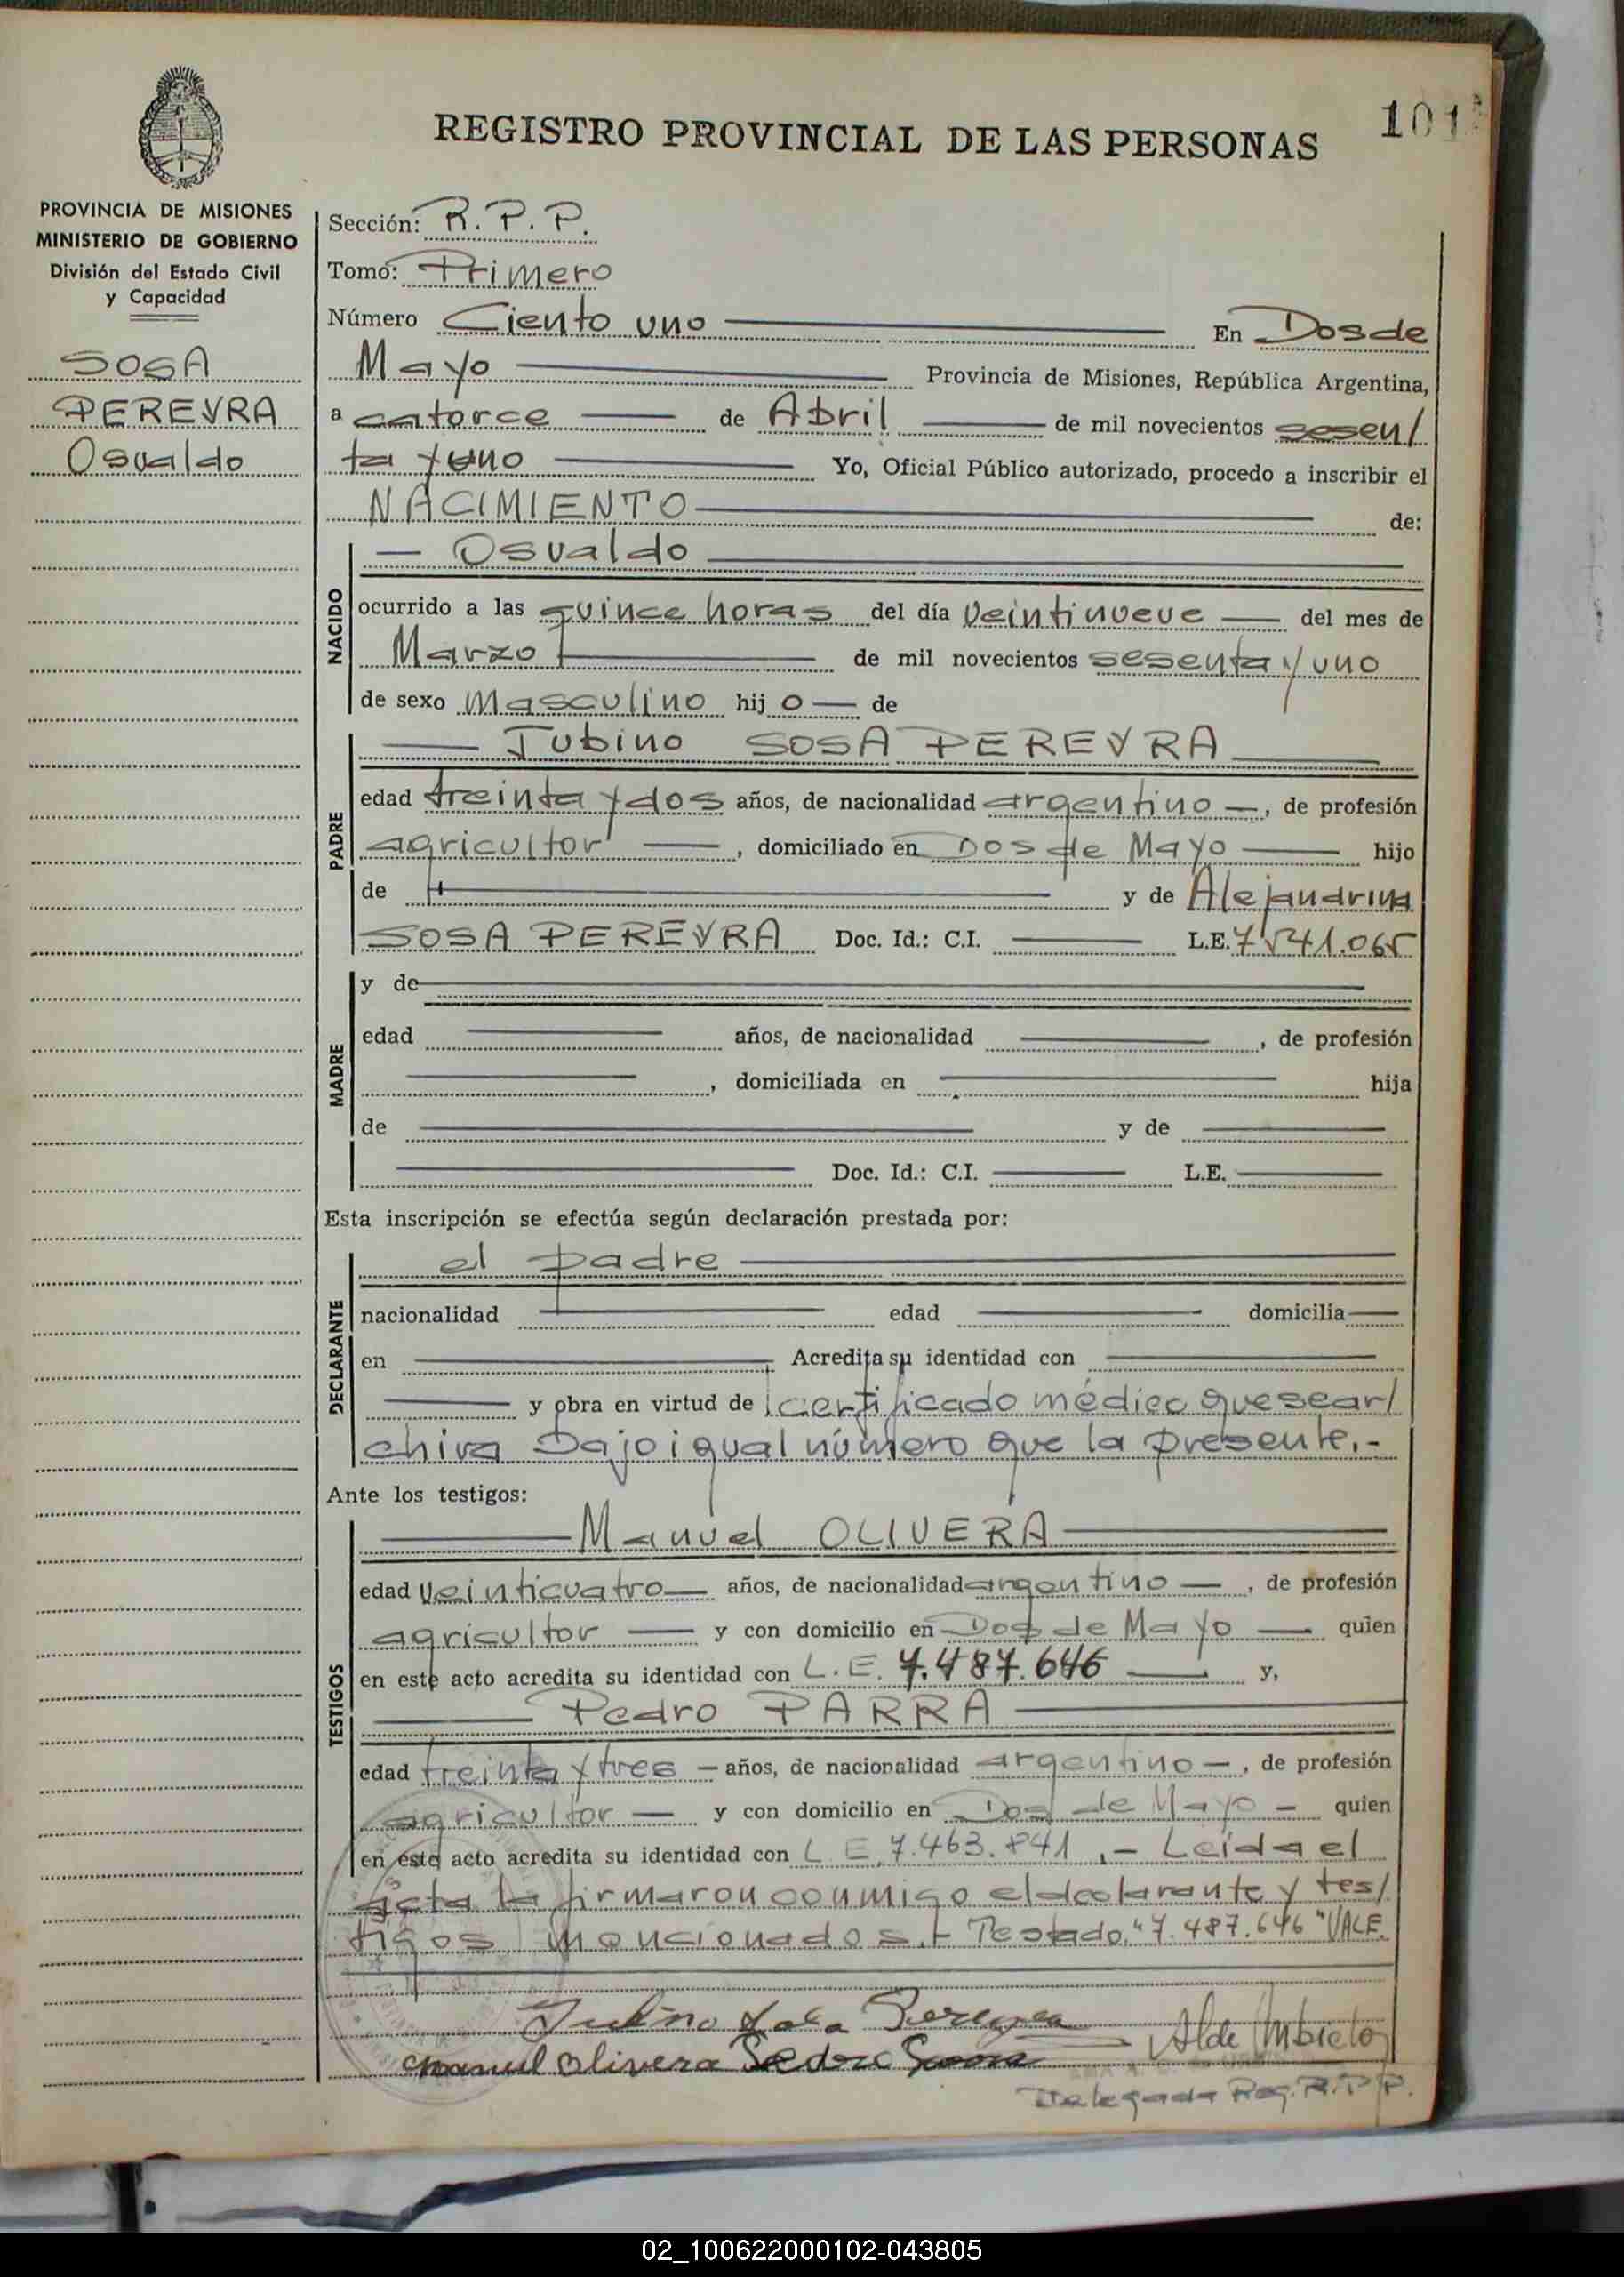 REGISTRO PROVINCIAL DE LAS PERSONAS
101
PROVINCIA DE MISIONES
MINISTERIO DE GOBIERNO
División del Estado Civil
y Capacidad
SOSA
PEREYRA
Osvaldo
Sección: R. P. P.
Tomo: Primero
Número Ciento uno En Dos de
Mayo Provincia de Misiones, República Argentina,
a catorce de Abril de mil novecientos sesen/
ta y uno Yo, Oficial Público autorizado, procedo a inscribir el
NACIMIENTO de:
NACIDO
Osvaldo
ocurrido a las quince horas del día veintinueve del mes de
Marzo de mil novecientos sesenta y uno
de sexo Masculino hij o de
PADRE
Jubino SOSA PEREYRA
edad treinta y dos años, de nacionalidad argentino, de profesión
agricultor, domiciliado en Dos de Mayo hijo
de y de Alejandrina
SOSA PEREYRA Doc. Id.: C.I. L.E. 7.541.065
MADRE
y de
edad años, de nacionalidad , de profesión
, domiciliada en hija
de y de
Doc. Id.: C.I. L.E.
Esta inscripción se efectúa según declaración prestada por:
DECLARANTE
el padre
nacionalidad edad domicilia
en Acredita su identidad con
y obra en virtud de certificado médico que se ar/
chiva bajo igual número que la presente.-
Ante los testigos:
TESTIGOS
Manuel OLIVERA
edad veinticuatro años, de nacionalidad argentino, de profesión
agricultor y con domicilio en Dos de Mayo quien
en este acto acredita su identidad con L.E. 7.487.646 y,
Pedro PARRA
edad treinta y tres años, de nacionalidad argentino, de profesión
agricultor y con domicilio en Dos de Mayo quien
en este acto acredita su identidad con L.E. 7.463.841.- Leída el
acta la firmaron conmigo el declarante y tes/
tigos mencionados.- Testado "7.487.646" VALE.
Jubino Sosa Pereyra
Manuel Olivera Pedro Parra
Delegada Reg. R.P.P.
02_100622000102-043805